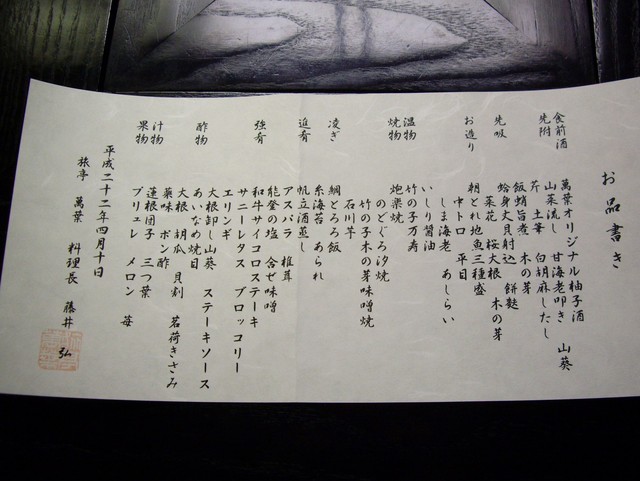 お品書き
食前酒 萬葉オリジナル柚子酒
先附 山菜流し 甘海老叩き 山葵
芹 土筆 白胡麻したし
飯蛸旨煮 木の芽
先吸 蛤身丈貝射込 餅麩
菜花 桜大根 木の芽
お造り 朝とれ地魚三種盛
中トロ 平目
しま海老 あしらい
いしり醤油
温物 竹の子万寿
焼物 炮楽焼
のどぐろ汐焼
竹の子木の芽味噌焼
石川芋
凌ぎ 鯛とろろ飯
糸海苔 あられ
進肴 帆立酒蒸し
アスパラ 椎茸
能登の塩 合せ味噌
強肴 和牛サイコロステーキ
サニーレタス ブロッコリー
エリンギ
大根卸し山葵 ステーキソース
酢物 あいなめ焼目
大根 胡瓜 貝割 茗荷きざみ
薬味 ポン酢
汁物 蓮根団子 三つ葉
果物 ブリュレ メロン 苺
平成二十二年四月十日
旅亭 萬葉 料理長 藤井 弘